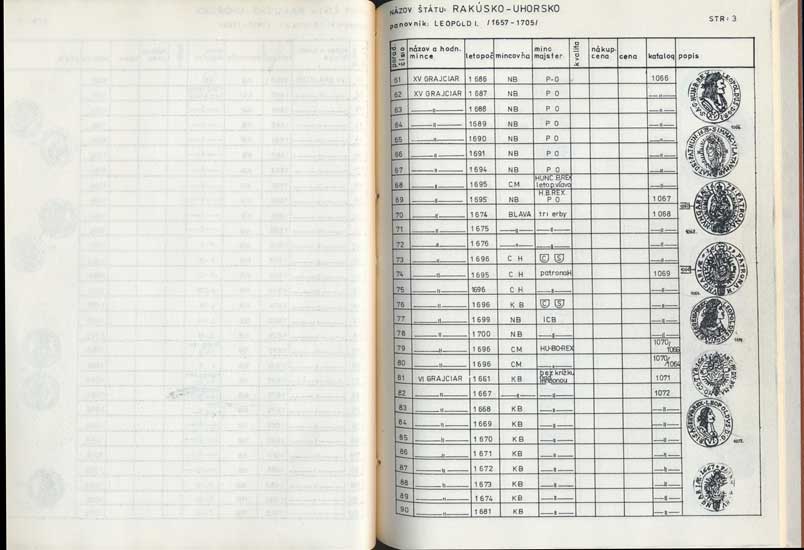 NÁZOV ŠTÁTU: RAKÚSKO-UHORSKO
panovník: LEOPOLD I. /1657-1705/ STR: 3
porad. číslo názov a hodn. mince letopoč mincovňa minc. majster kvalita nákup. cena cena katalog popis
61 XV GRAJCIAR 1686 NB P-O 1066
62 XV GRAJCIAR 1687 NB P O —"—
63 —"— 1688 NB P O —"—
64 —"— 1689 NB P O —"—
65 —"— 1690 NB P O —"—
66 —"— 1691 NB P O —"—
67 —"— 1694 NB P O —"—
68 —"— 1695 CM HUNC.B.REX letop vľavo —"—
69 —"— 1695 NB H.B.REX. P O 1067
70 —"— 1674 BLAVA tri erby 1068
71 —"— 1675 —"— —"— —"—
72 —"— 1676 —"— —"— —"—
73 —"— 1696 C H C S —"—
74 —"— 1695 C H patronaH 1069
75 —"— 1696 C H —"— —"—
76 —"— 1696 K B C S —"—
77 —"— 1699 NB ICB —"—
78 —"— 1700 NB —"— —"—
79 —"— 1696 CM HU-BO-REX 1070/1066
80 —"— 1696 CM —"— 1070/1064
81 VI GRAJCIAR 1661 KB bez krížku 1071
82 —"— 1667 —"— —"— 1072
83 —"— 1668 KB —"— —"—
84 —"— 1669 KB —"— —"—
85 —"— 1670 KB —"— —"—
86 —"— 1671 KB —"— —"—
87 —"— 1672 KB —"— —"—
88 —"— 1673 KB —"— —"—
89 —"— 1674 KB —"— —"—
90 —"— 1681 KB —"— —"—